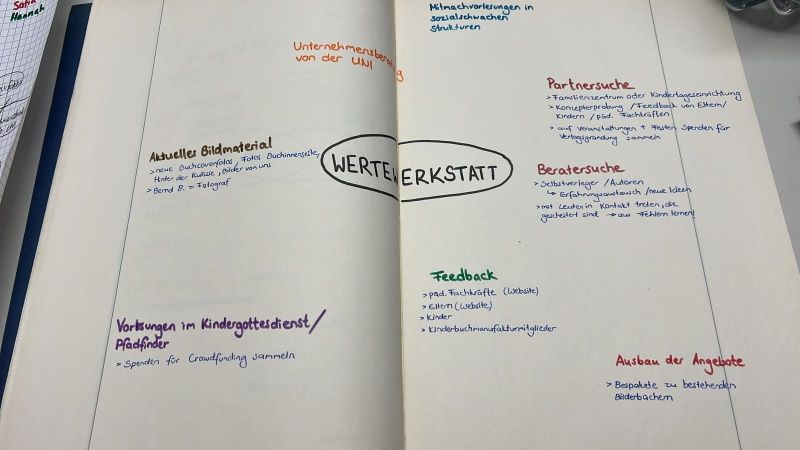 Hannah
Mitmachvorlesungen in
sozialschwachen
Strukturen
Unternehmensberatung
von der UNI
Partnersuche
> Familienzentrum oder Kindertageseinrichtung
> Konzepterprobung / Feedback von Eltern/
Kindern / päd. Fachkräften
> auf Veranstaltungen + Festen Spenden für
Verlagsgründung sammeln
Aktuelles Bildmaterial
> neue Buchcoverfotos, Fotos Buchinnenseite,
Hinter der Kulisse, Bilder von uns
> Bernd B. = Fotograf
WERTEWERKSTATT
Beratersuche
> Selbstverleger / Autoren
↳ Erfahrungsaustausch / neue Ideen
> mit Leuten in Kontakt treten, die
gescheitert sind → aus Fehlern lernen!
Feedback
> päd. Fachkräfte (Website)
> Eltern (Website)
> Kinder
> Kinderbuchmanufakturmitglieder
Vorlesungen im Kindergottesdienst/
Pfadfinder
> Spenden für Crowdfunding sammeln
Ausbau der Angebote
> Bespakete zu bestehenden
Bilderbüchern